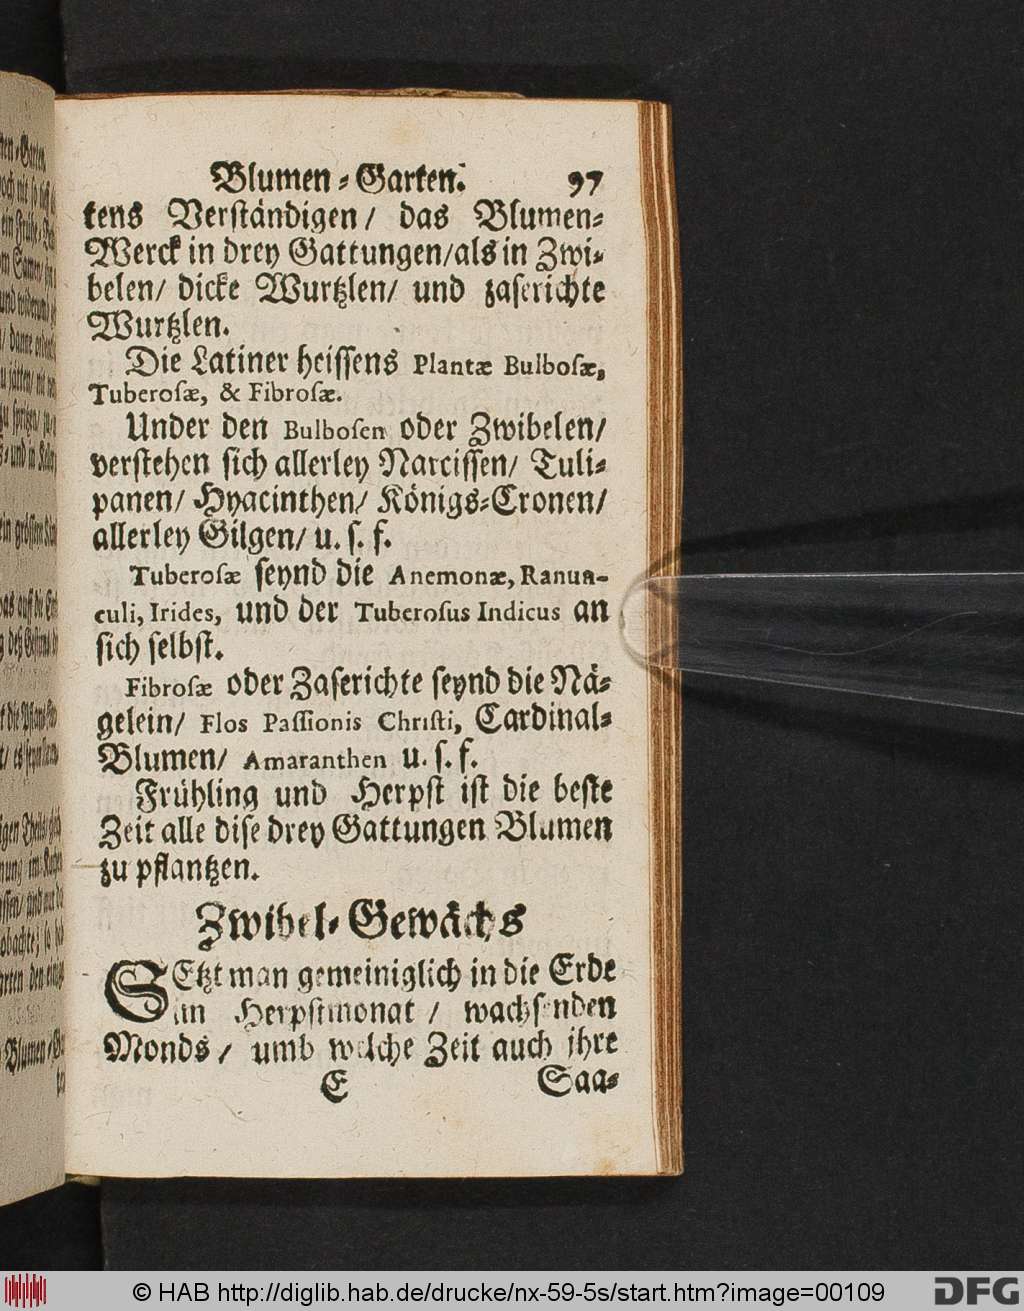 Blumen-Garten. 97
tens Verständigen/ das Blumen-
Werck in drey Gattungen/als in Zwi-
belen/ dicke Wurtzlen/ und zaserichte
Wurtzlen.
Die Latiner heissens Plantæ Bulbosæ,
Tuberosæ, & Fibrosæ.
Under den Bulbosen oder Zwibelen/
verstehen sich allerley Narcissen/ Tuli-
panen/ Hyacinthen/ Königs-Cronen/
allerley Gilgen/ u. s. f.
Tuberosæ seynd die Anemonæ, Ranun-
culi, Irides, und der Tuberosus Indicus an
sich selbst.
Fibrosæ oder Zaserichte seynd die Nä-
gelein/ Flos Passionis Christi, Cardinal-
Blumen/ Amaranthen u. s. f.
Frühling und Herpst ist die beste
Zeit alle dise drey Gattungen Blumen
zu pflantzen.
Zwibel-Gewächs
SEtzt man gemeiniglich in die Erde
im Herpstmonat / wachsenden
Monds / umb welche Zeit auch ihre
E Saa-
© HAB http://diglib.hab.de/drucke/nx-59-5s/start.htm?image=00109
DFG